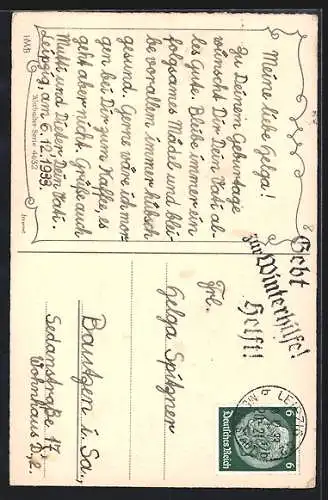 Meine liebe Helga!
Zu Deinem Geburtstage
wünscht Dir Dein Vati al-
les Gute. Bleibe immer ein
folgsames Mädel und blei-
be vor allem immer hübsch
gesund. Gerne wäre ich mor-
gen bei Dir zum Kaffee, es
geht aber nicht. Grüße auch
Mutti und Dieter. Dein Vati.
Leipzig, am 6.12.1933.
HWB
Künstler Serie 4652
Gebt
zur Winterhilfe!
Helft!
LEIPZIG
6 6
Deutsches Reich
Frl.
Helga Spitzner
Bautzen i. Sa.,
Sedanstraße 17
Wohnhaus D, r.